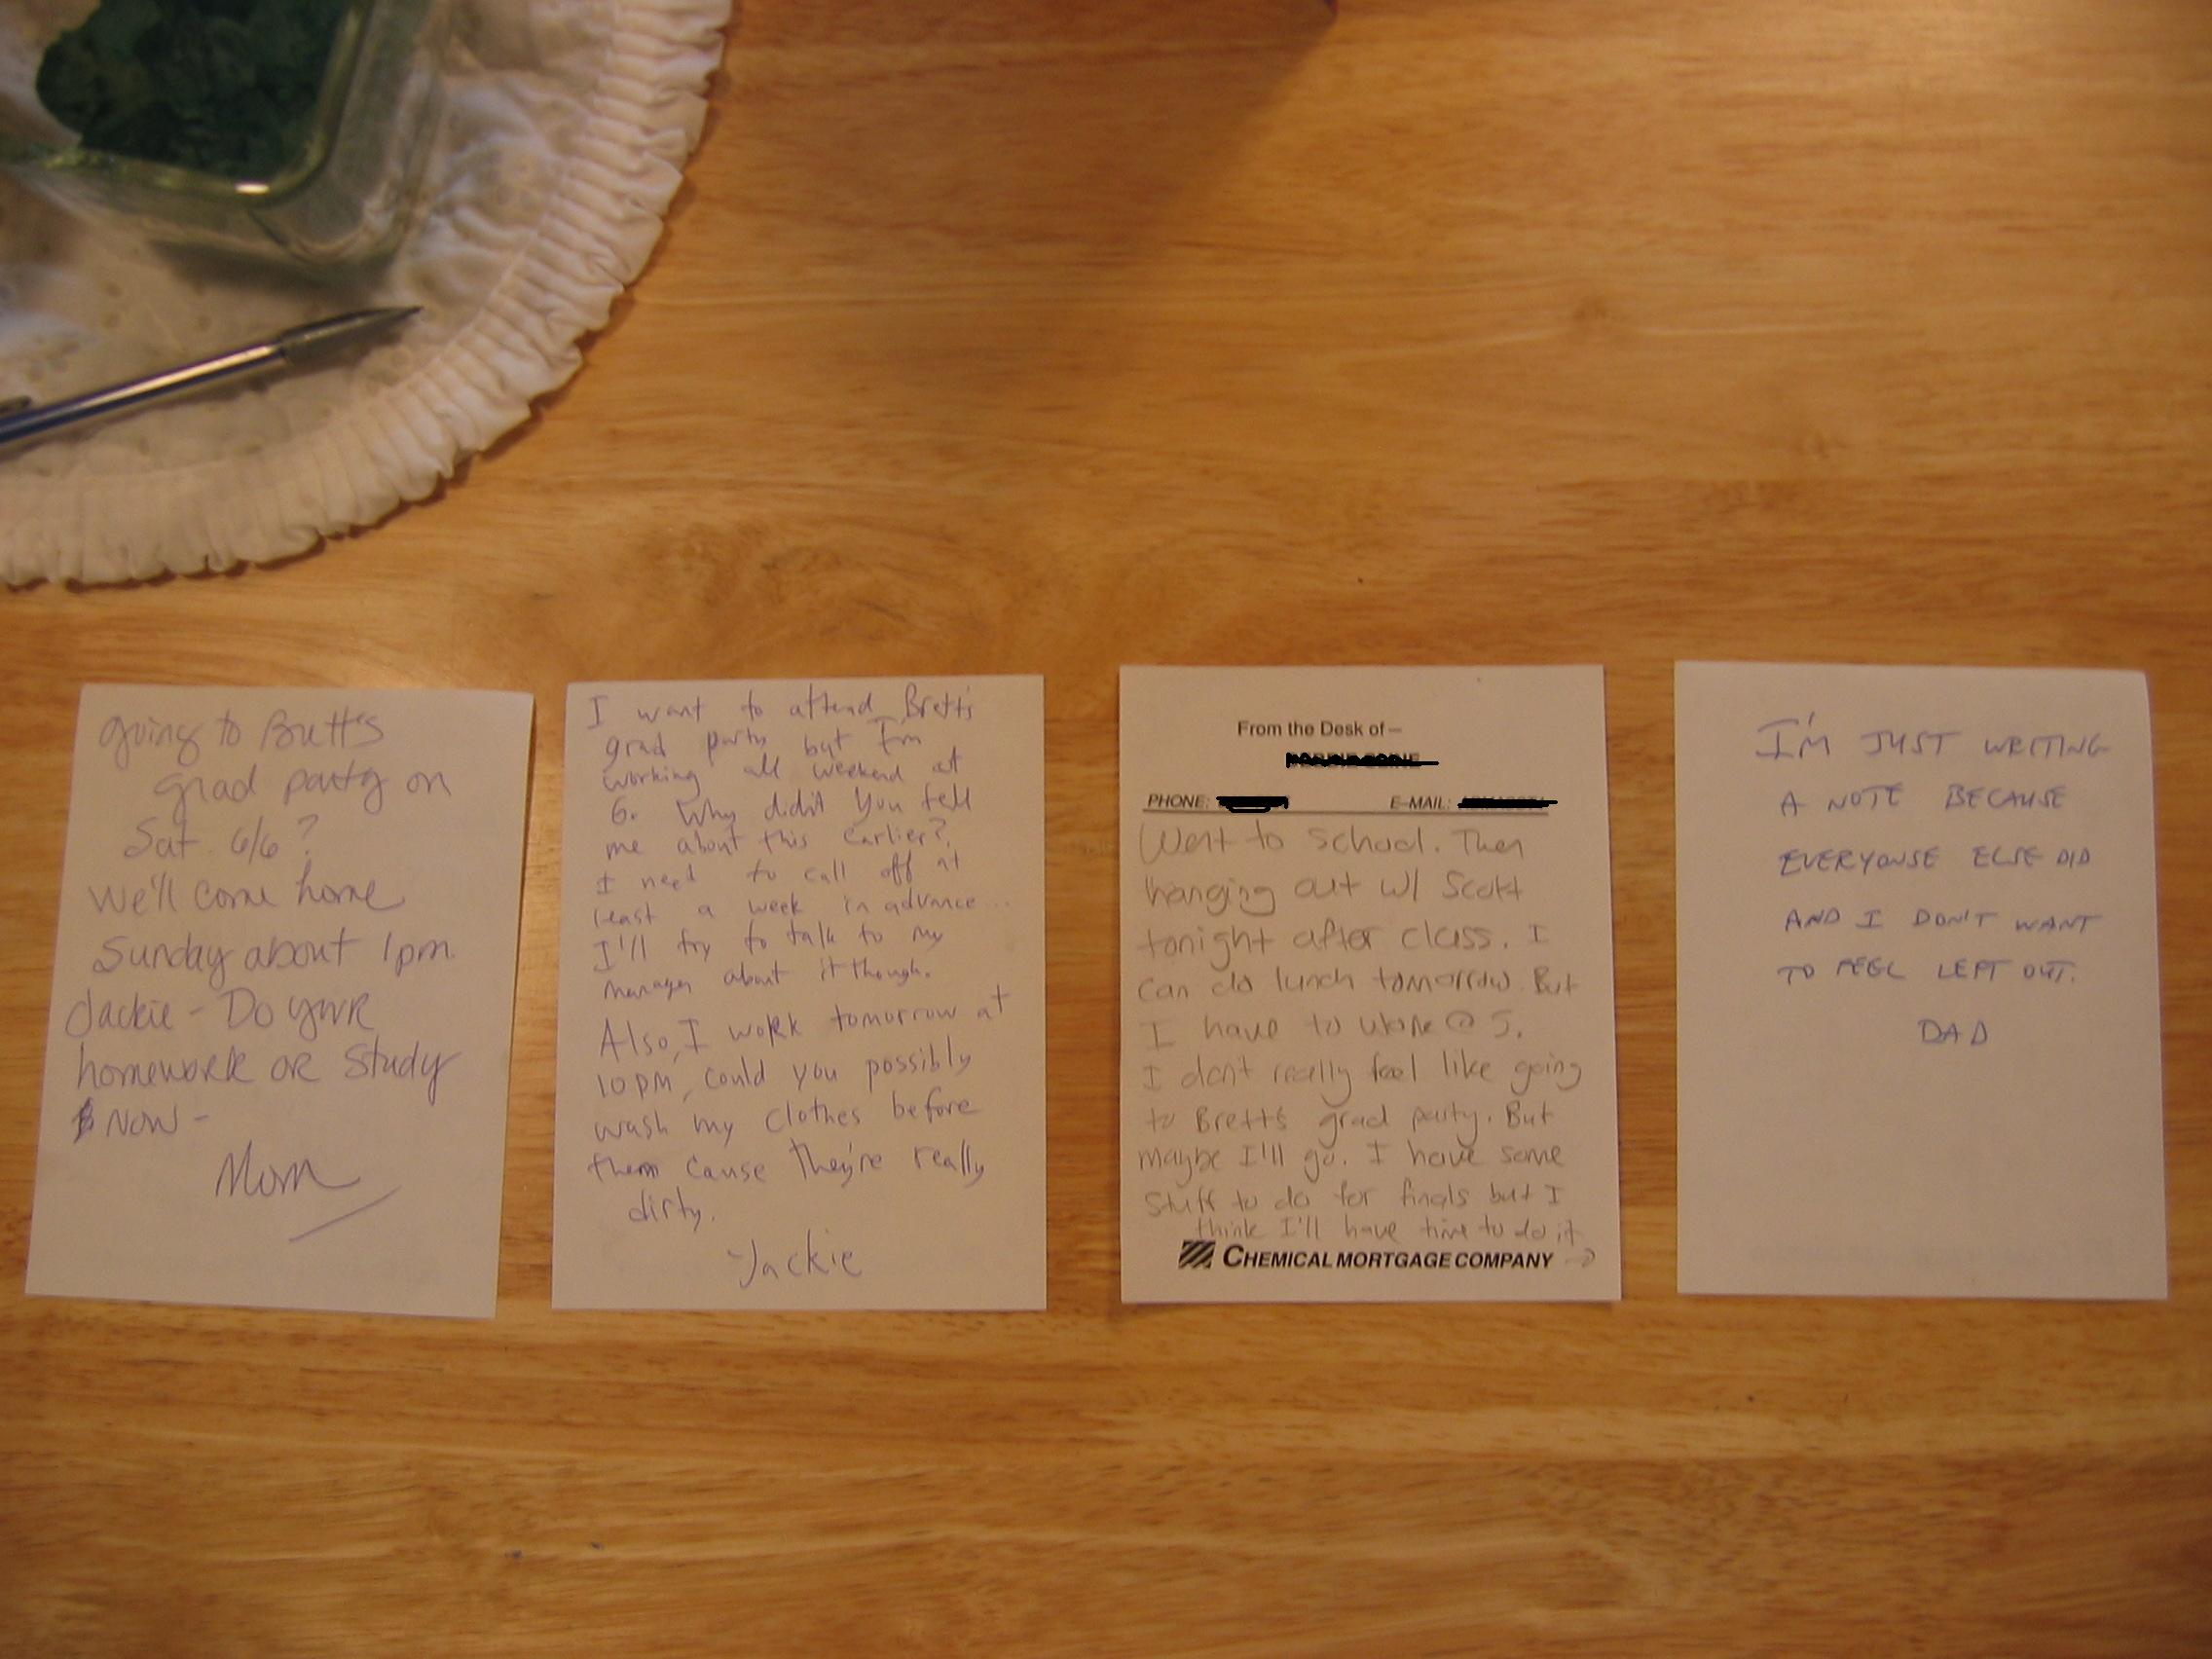 going to Brett's
grad party on
Sat. 6/6?
We'll come home
Sunday about 1pm.
Jackie - Do your
homework or study
NOW -
Mom
I want to attend Brett's
grad party but I'm
working all weekend at
6. Why didn't you tell
me about this earlier?
I need to call off at
least a week in advance...
I'll try to talk to my
manager about it though.
Also, I work tomorrow at
10pm, could you possibly
wash my clothes before
them cause they're really
dirty.
-Jackie
From the Desk of —
PHONE: E-MAIL:
Went to school. Then
hanging out w/ Scott
tonight after class. I
can do lunch tomorrow. But
I have to work @ 5.
I don't really feel like going
to Brett's grad party. But
maybe I'll go. I have some
stuff to do for finals but I
think I'll have time to do it
CHEMICAL MORTGAGE COMPANY →
I'M JUST WRITING
A NOTE BECAUSE
EVERYONSE ELSE DID
AND I DON'T WANT
TO FEEL LEFT OUT.
DAD